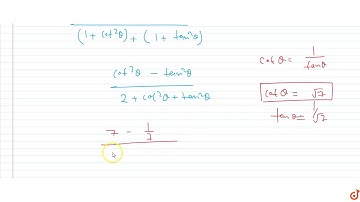 (1 + cot²θ) + (1 + tan²θ)
cot²θ - tan²θ
2 + cot²θ + tan²θ
7 - 1/7
cot θ = 1/tanθ
cot θ = √7
tan θ = 1/√7